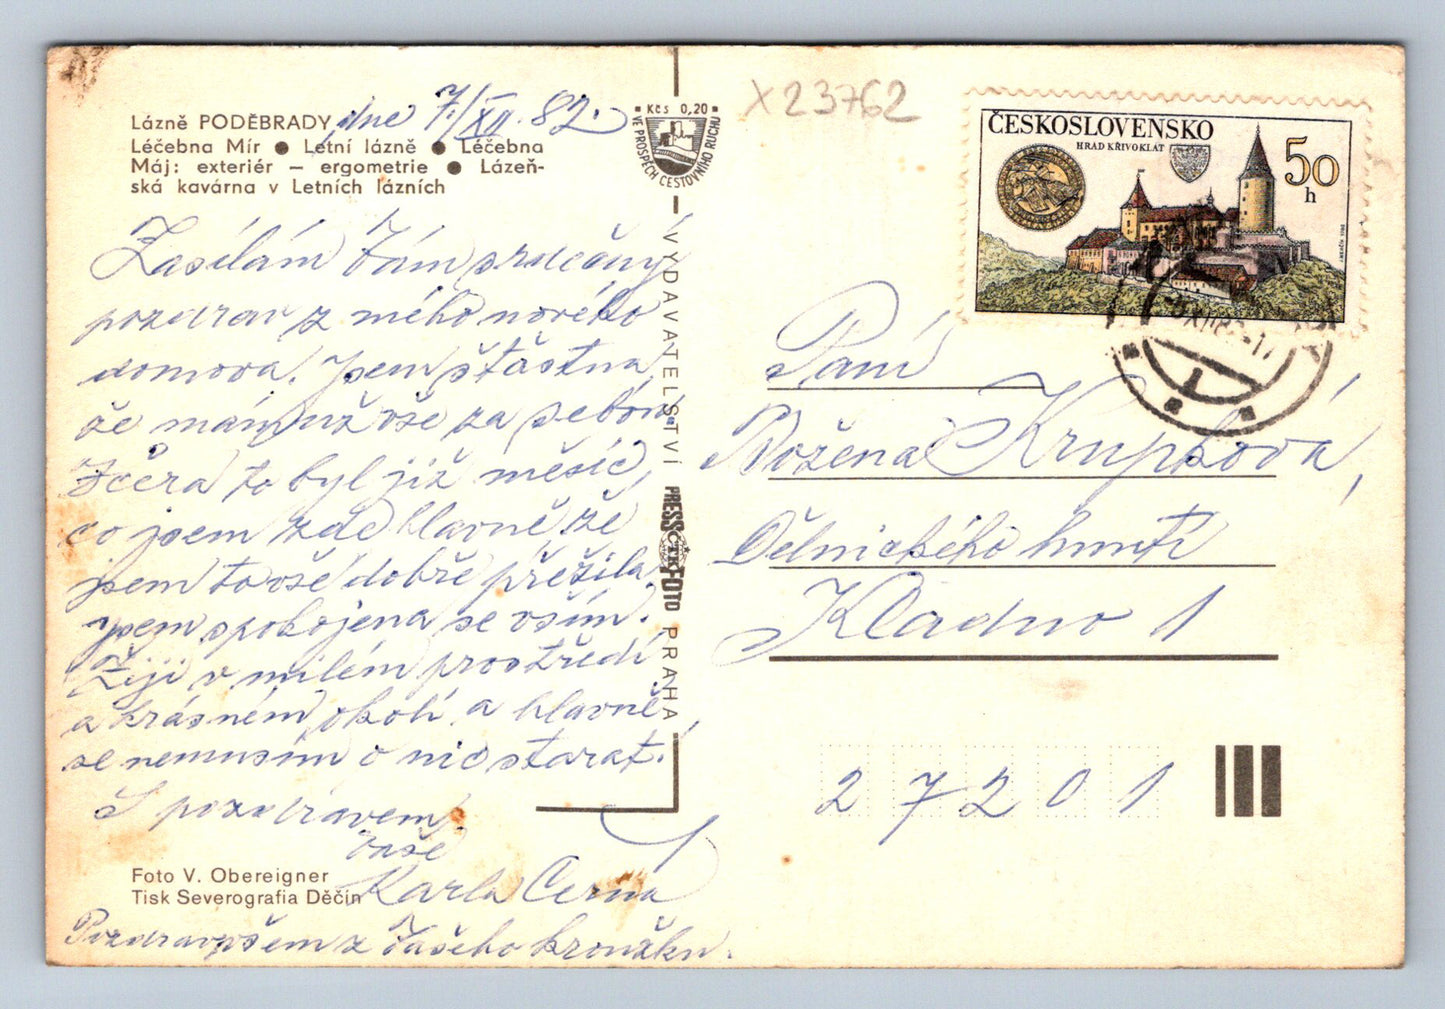 Lázně PODĚBRADY
Léčebna Mír ● Letní lázně ● Léčebna
Máj: exteriér – ergometrie ● Lázeň-
ská kavárna v Letních lázních
dne 7./XII. 82.
Zasílám Vám srdečný
pozdrav z mého nového
domova. Jsem šťastna,
že mám už vše za sebou.
Včera to byl již měsíc,
co jsem zde hlavně, že
jsem to vše dobře přežila,
jsem spokojena se vším.
Žiji v milém prostředí
a krásném okolí a hlavně,
se nemusím o nic starat.
S pozdravem
Vaše
Karla Černá
Pozdrav všem z Vašeho kroužku.
Foto V. Obereigner
Tisk Severografia Děčín
Kčs 0,20
VE PROSPĚCH CESTOVNÍHO RUCHU
VYDAVATELSTVÍ PRESSFOTO PRAHA
ČTK
X23762
ČESKOSLOVENSKO
HRAD KŘIVOKLÁT
50
h
Paní
Božena Krupková,
Dělnického hnutí
Kladno 1
27201